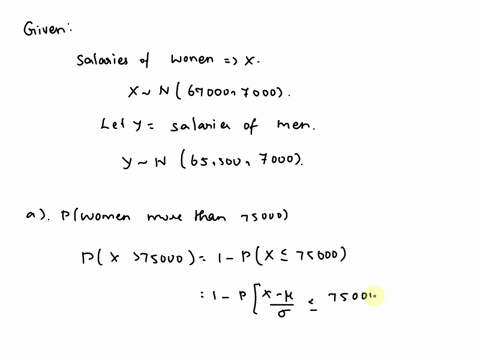 Given:
Salaries of women => X.
X ~ N(67000, 7000).
Let y = salaries of men.
y ~ N (65,500, 7000).
a). P(women more than 75000)
P(X > 75000) = 1 - P(X ≤ 75000)
= 1 - P[X - μ / σ ≤ 75000